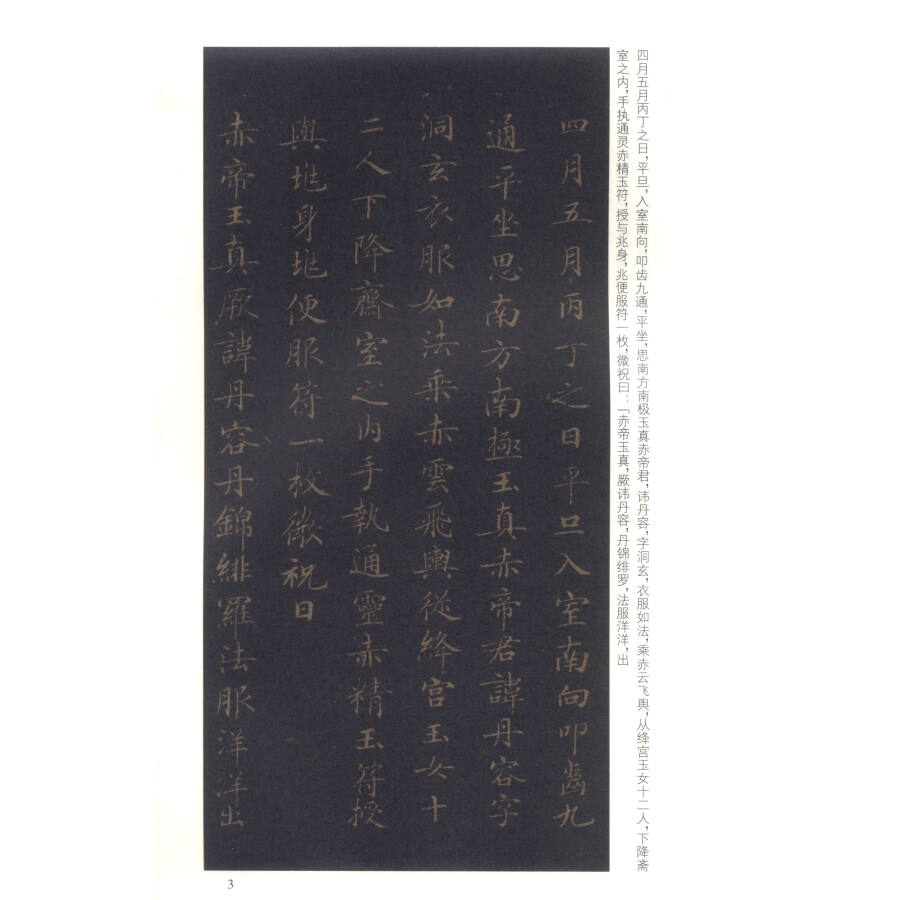 四月五月丙丁之日，平旦，入室南向，叩齿九通，平坐，思南方南极玉真赤帝君，讳丹容，字洞玄，衣服如法，乘赤云飞舆，从绛宫玉女十二人，下降斋
室之内，手执通灵赤精玉符，授与兆身，兆便服符一枚，微祝曰：「赤帝玉真，厥讳丹容，丹锦绯罗，法服洋洋，出
四月五月丙丁之日平旦入室南向叩齒九
通平坐思南方南極玉真赤帝君諱丹容字
洞玄衣服如法乘赤雲飛輿從絳宫玉女十
二人下降齋室之内手執通靈赤精玉符授
與兆身兆便服符一枚微祝曰
赤帝玉真厥諱丹容丹錦緋羅法服洋洋出
3